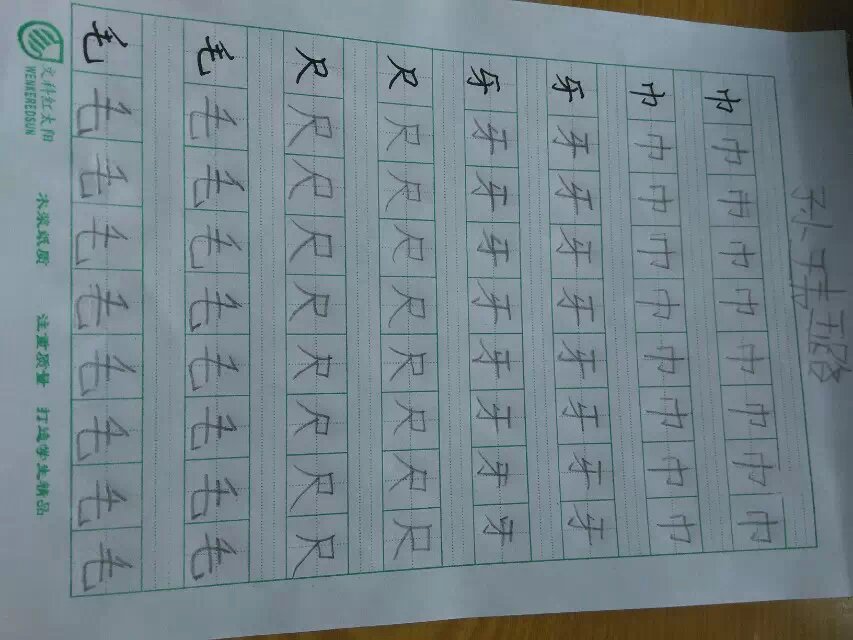 孙璐
巾巾巾巾巾巾巾巾巾
巾巾巾巾巾巾巾巾巾
牙牙牙牙牙牙牙牙牙
牙牙牙牙牙牙牙牙牙
尺尺尺尺尺尺尺尺尺
尺尺尺尺尺尺尺尺尺
毛毛毛毛毛毛毛毛毛
毛毛毛毛毛毛毛毛毛
文科红太阳 木浆纸质 注重质量 打造学生精品
WENKEREDSUN